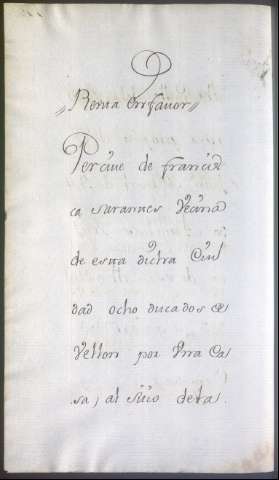 Renta en favor
Percive de francis
ca Sarannes Vecina
de esta dicha Ciu
dad ocho ducados de
Vellon por Una Ca
sa, al sitio dela.